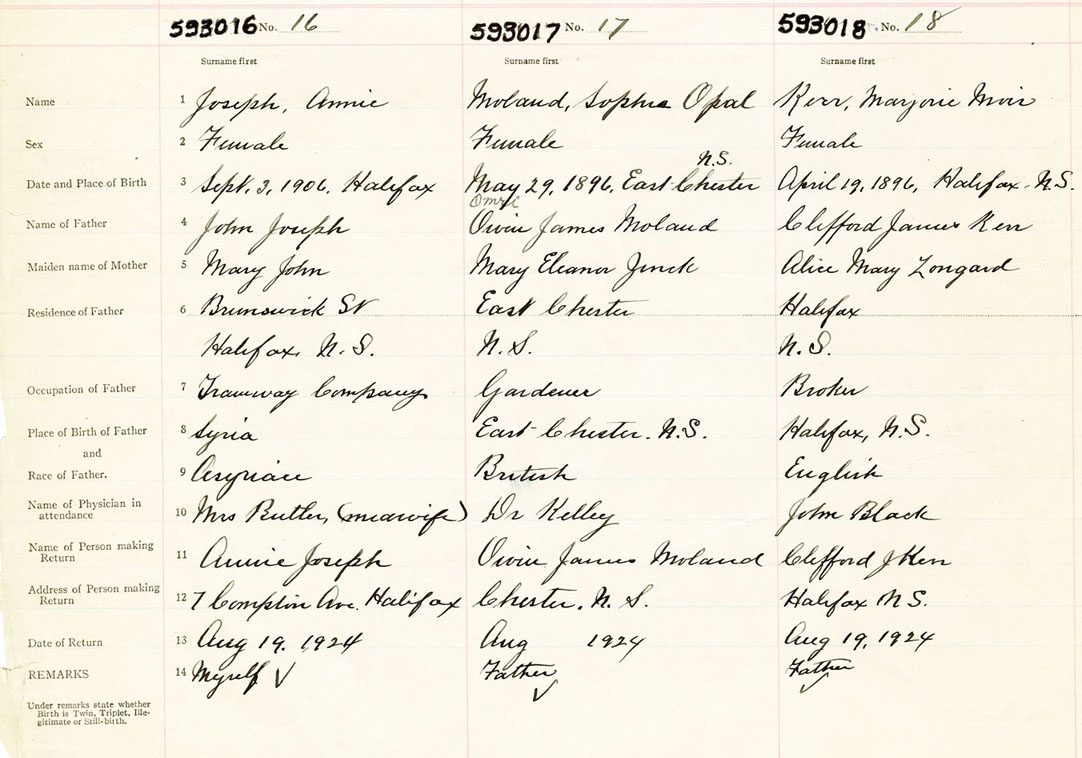 593016 No. 16 593017 No. 17 593018 No. 18
Surname first Surname first Surname first
Name 1 Joseph, Annie Moland, Sophia Opal Kerr, Marjorie Muir
Sex 2 Female Female Female
N.S.
Date and Place of Birth 3 Sept. 3, 1906, Halifax May 29, 1896, East Chester April 19, 1896, Halifax. N.S.
Name of Father 4 John Joseph James Moland Clifford James Kerr
Maiden name of Mother 5 Mary John Mary Eleanor Alice Mary Longard
Residence of Father 6 Brunswick St East Chester Halifax
Halifax, N.S. N.S. N.S.
Occupation of Father 7 Tramway Company Gardener Broker
Place of Birth of Father 8 Syria East Chester. N.S. Halifax, N.S.
and
Race of Father. 9 British English
Name of Physician in
attendance 10 Mrs Butler, (midwife) Dr Kelley John Black
Name of Person making
Return 11 Annie Joseph James Moland Clifford J Kerr
Address of Person making
Return 12 7 Compton Ave. Halifax Chester. N.S. Halifax N.S.
Date of Return 13 Aug 19, 1924 Aug 1924 Aug 19, 1924
REMARKS 14 Myself ✓ Father ✓ Father ✓
Under remarks state whether
Birth is Twin, Triplet, Ille-
gitimate or Still-birth.